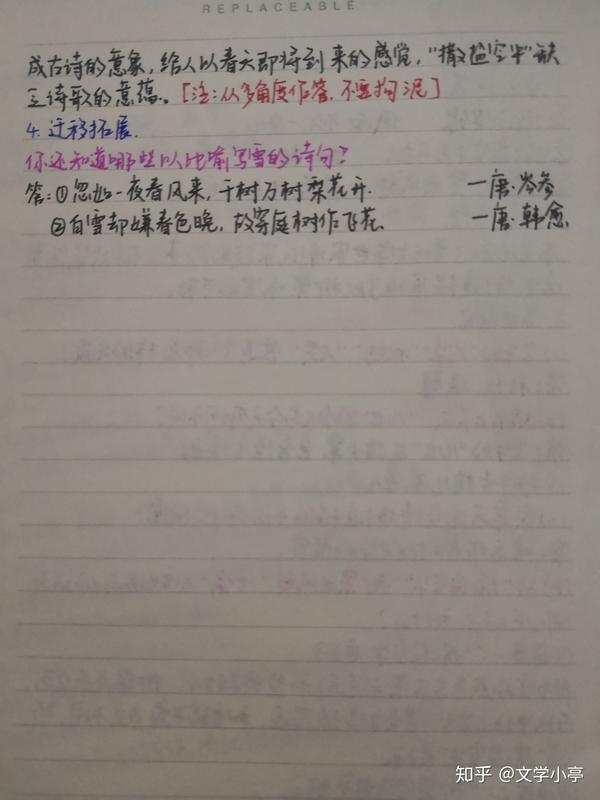 REPLACEABLE
成古诗的意象，给人以春天即将到来的感觉，“撒盐空中”缺
乏诗歌的意蕴。[注：从多角度作答，不要拘泥]
4. 迁移拓展.
你还知道哪些以比喻写雪的诗句？
答：①忽如一夜春风来，千树万树梨花开. —唐·岑参
②白雪却嫌春色晚，故穿庭树作飞花. —唐·韩愈
知乎 @文学小亭